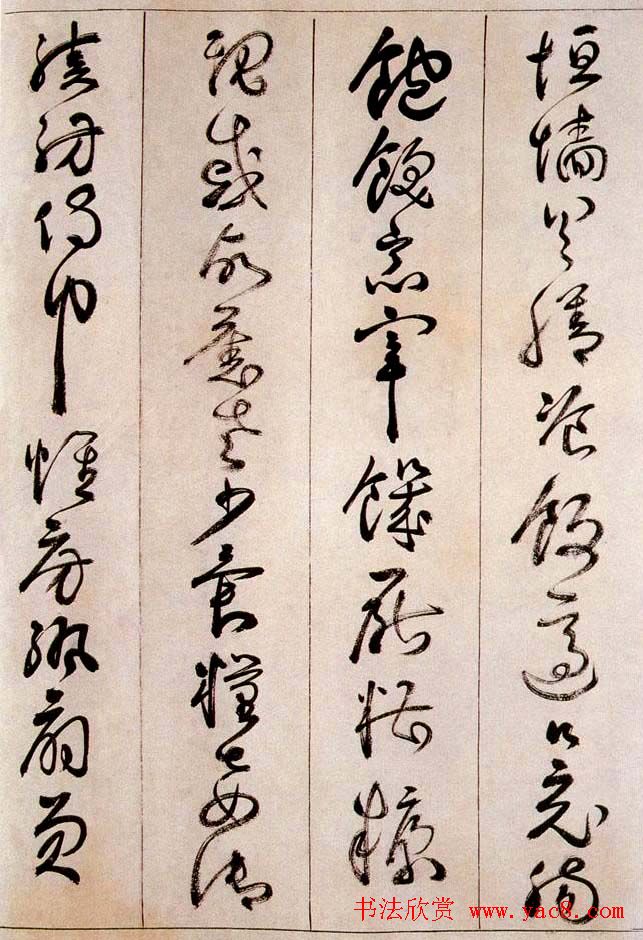 垣牆具膳飡飯適口充腸
飽飫烹宰饑厭糟糠
親戚故舊老少異糧妾御
績紡侍巾帷房紈扇員
书法欣赏 www.yac8.com